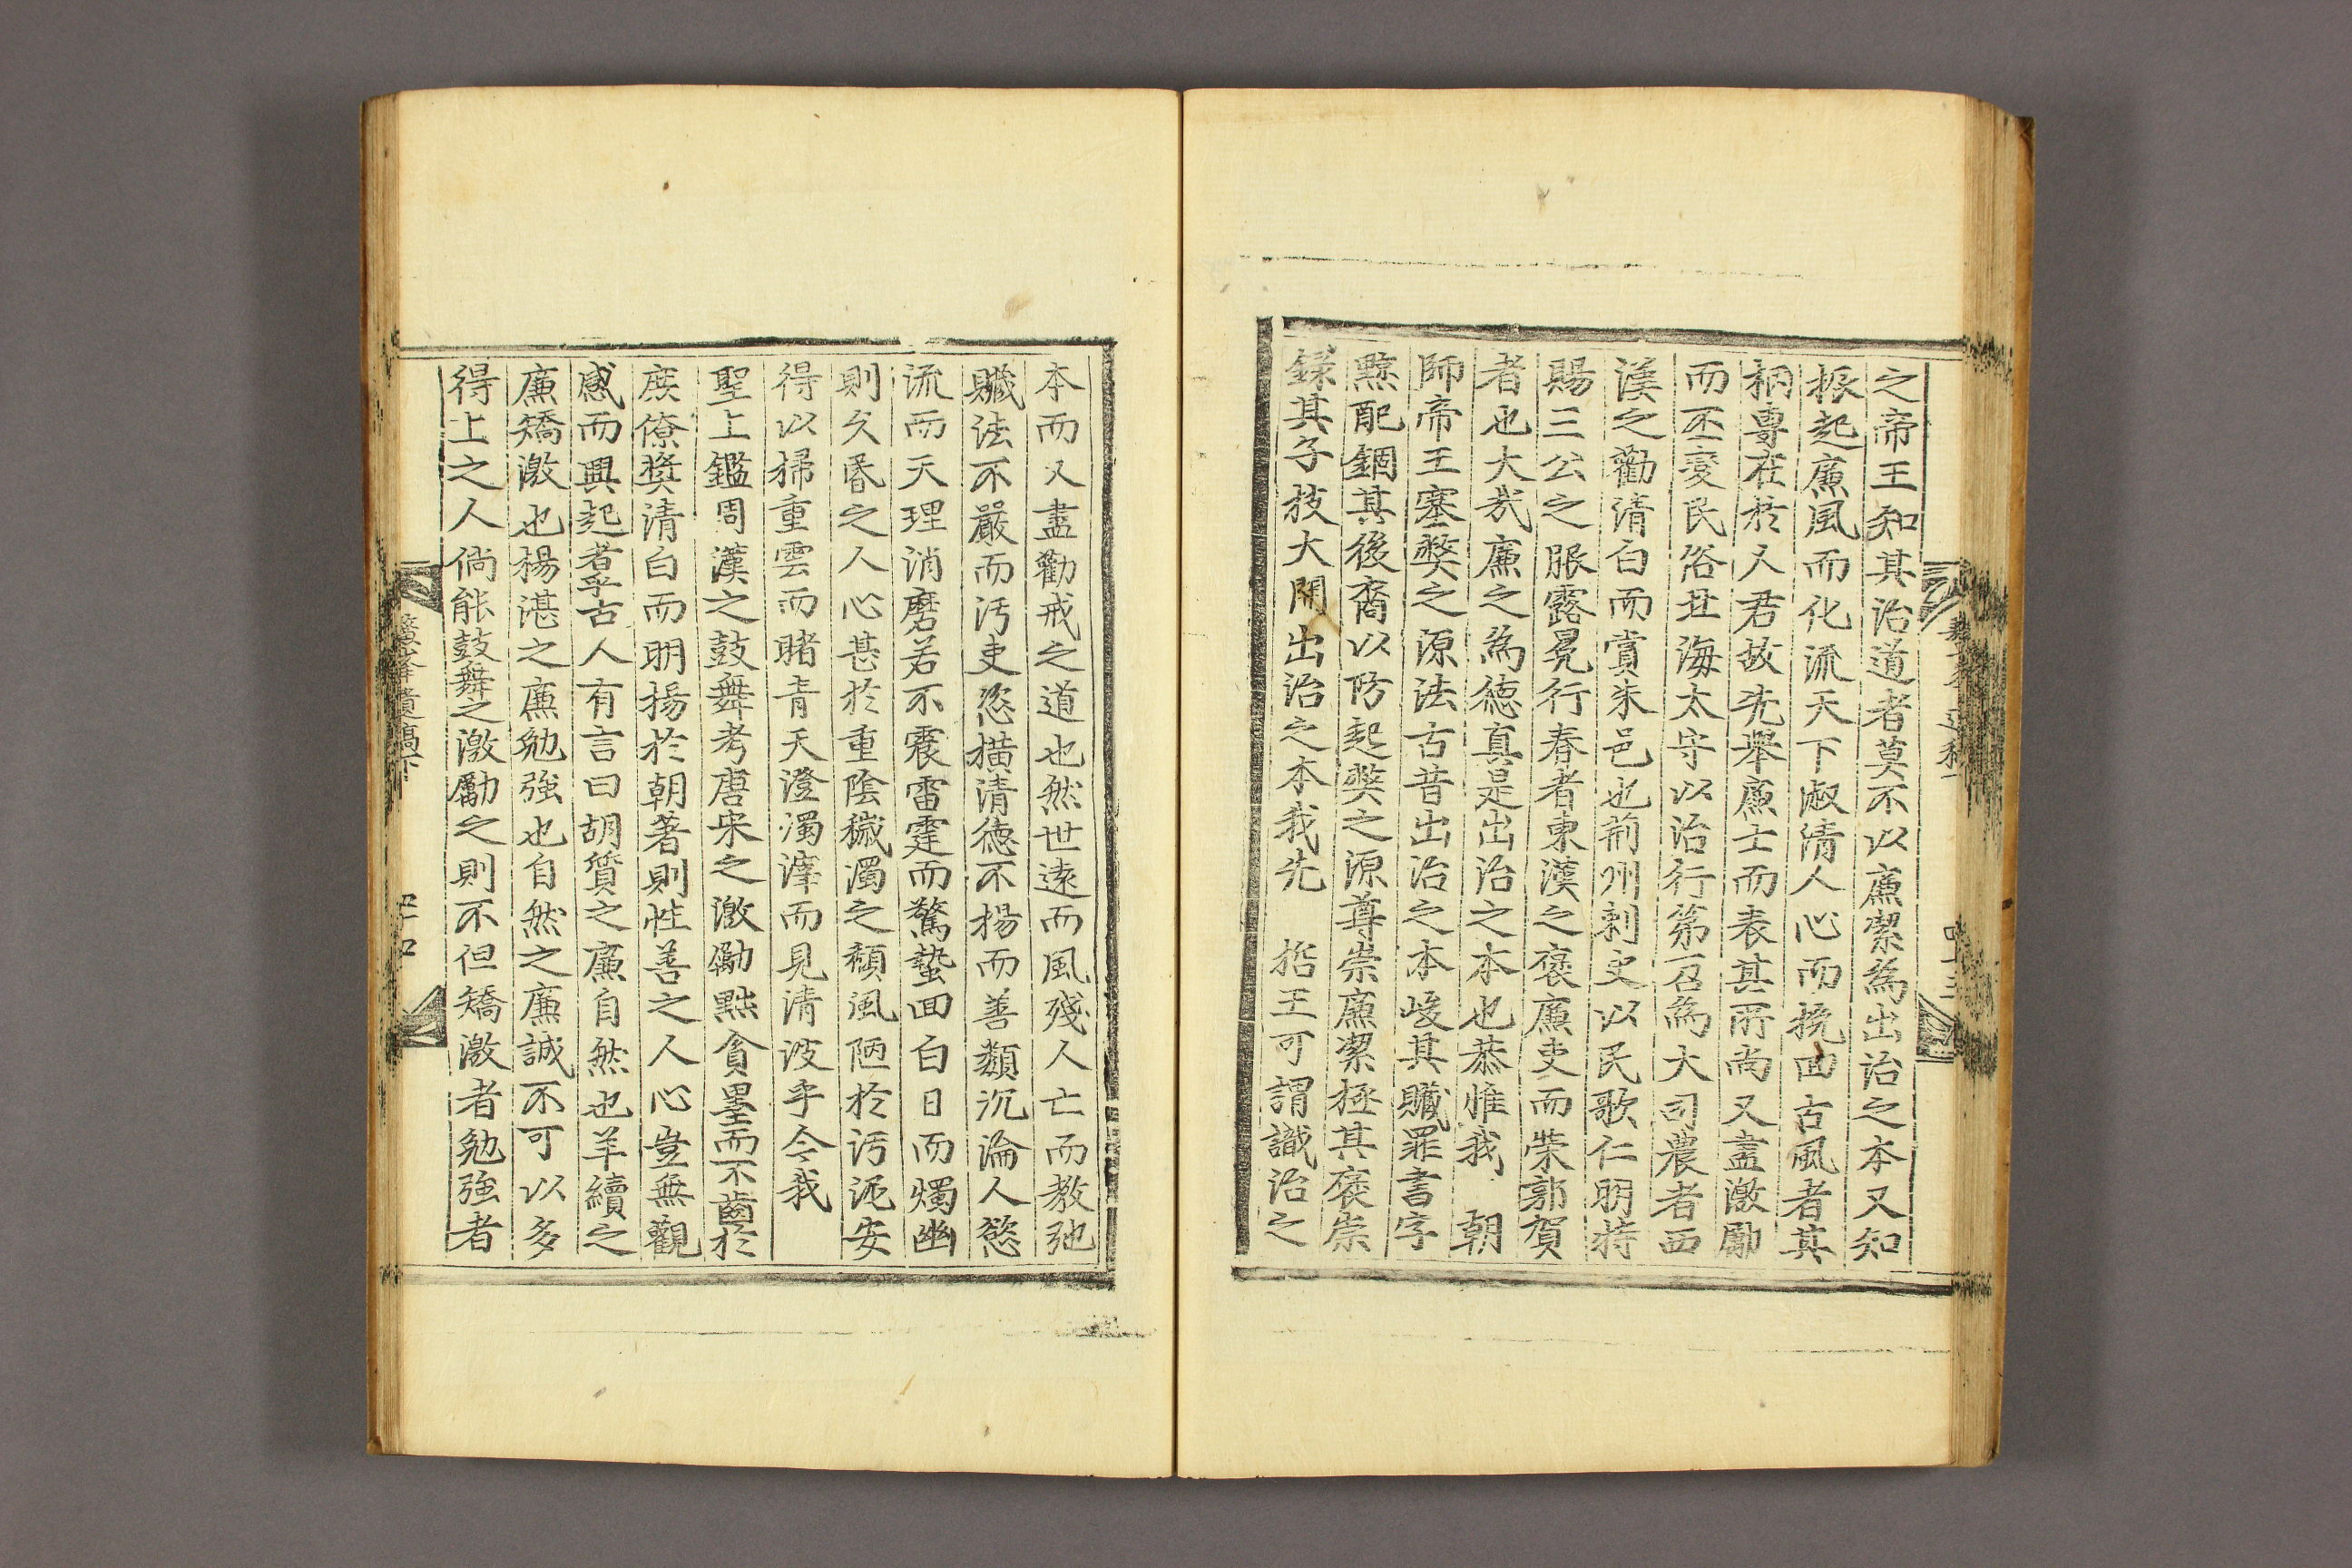 之帝王知其治道者莫不以廉潔為出治之本又知
振起廉風而化流天下淑清人心而挽回古風者其
柄專在於人君故先舉廉士而表其所尚又盡激勵
而丕變民俗北海太守以治行第一召為大司農者西
漢之勸清白而賞朱邑也荊州刺史以民歌仁明特
賜三公之服露冕行春者東漢之褒廉吏而榮郭賀
者也大㢤廉之為德真是出治之本也恭惟我 朝
師帝王塞弊之源法古昔出治之本峻其贓罪書字
黥配錮其後裔以防起弊之源尊崇廉潔極其褒崇
錄其子技大開出治之本我先 拓王可謂識治之
本而又盡勸戒之道也然世遠而風殘人亡而教弛
贓法不嚴而汚吏恣橫清德不揚而善類沉淪人慾
流而天理消磨若不震雷霆而驚蟄回白日而燭幽
則久昏之人心甚於重陰穢濁之頹風陋於汚泥安
得以掃重雲而睹青天澄濁滓而見清波乎今我
聖上鑑周漢之鼓舞考唐宋之激勵黜貪墨而不齒於
庶僚奬清白而明揚於朝著則性善之人心豈無觀
感而興起者乎古人有言曰胡質之廉自然也羊續之
廉矯激也楊湛之廉勉強也自然之廉誠不可以多
得上之人倘能鼓舞之激勵之則不但矯激者勉強者
遺稿下